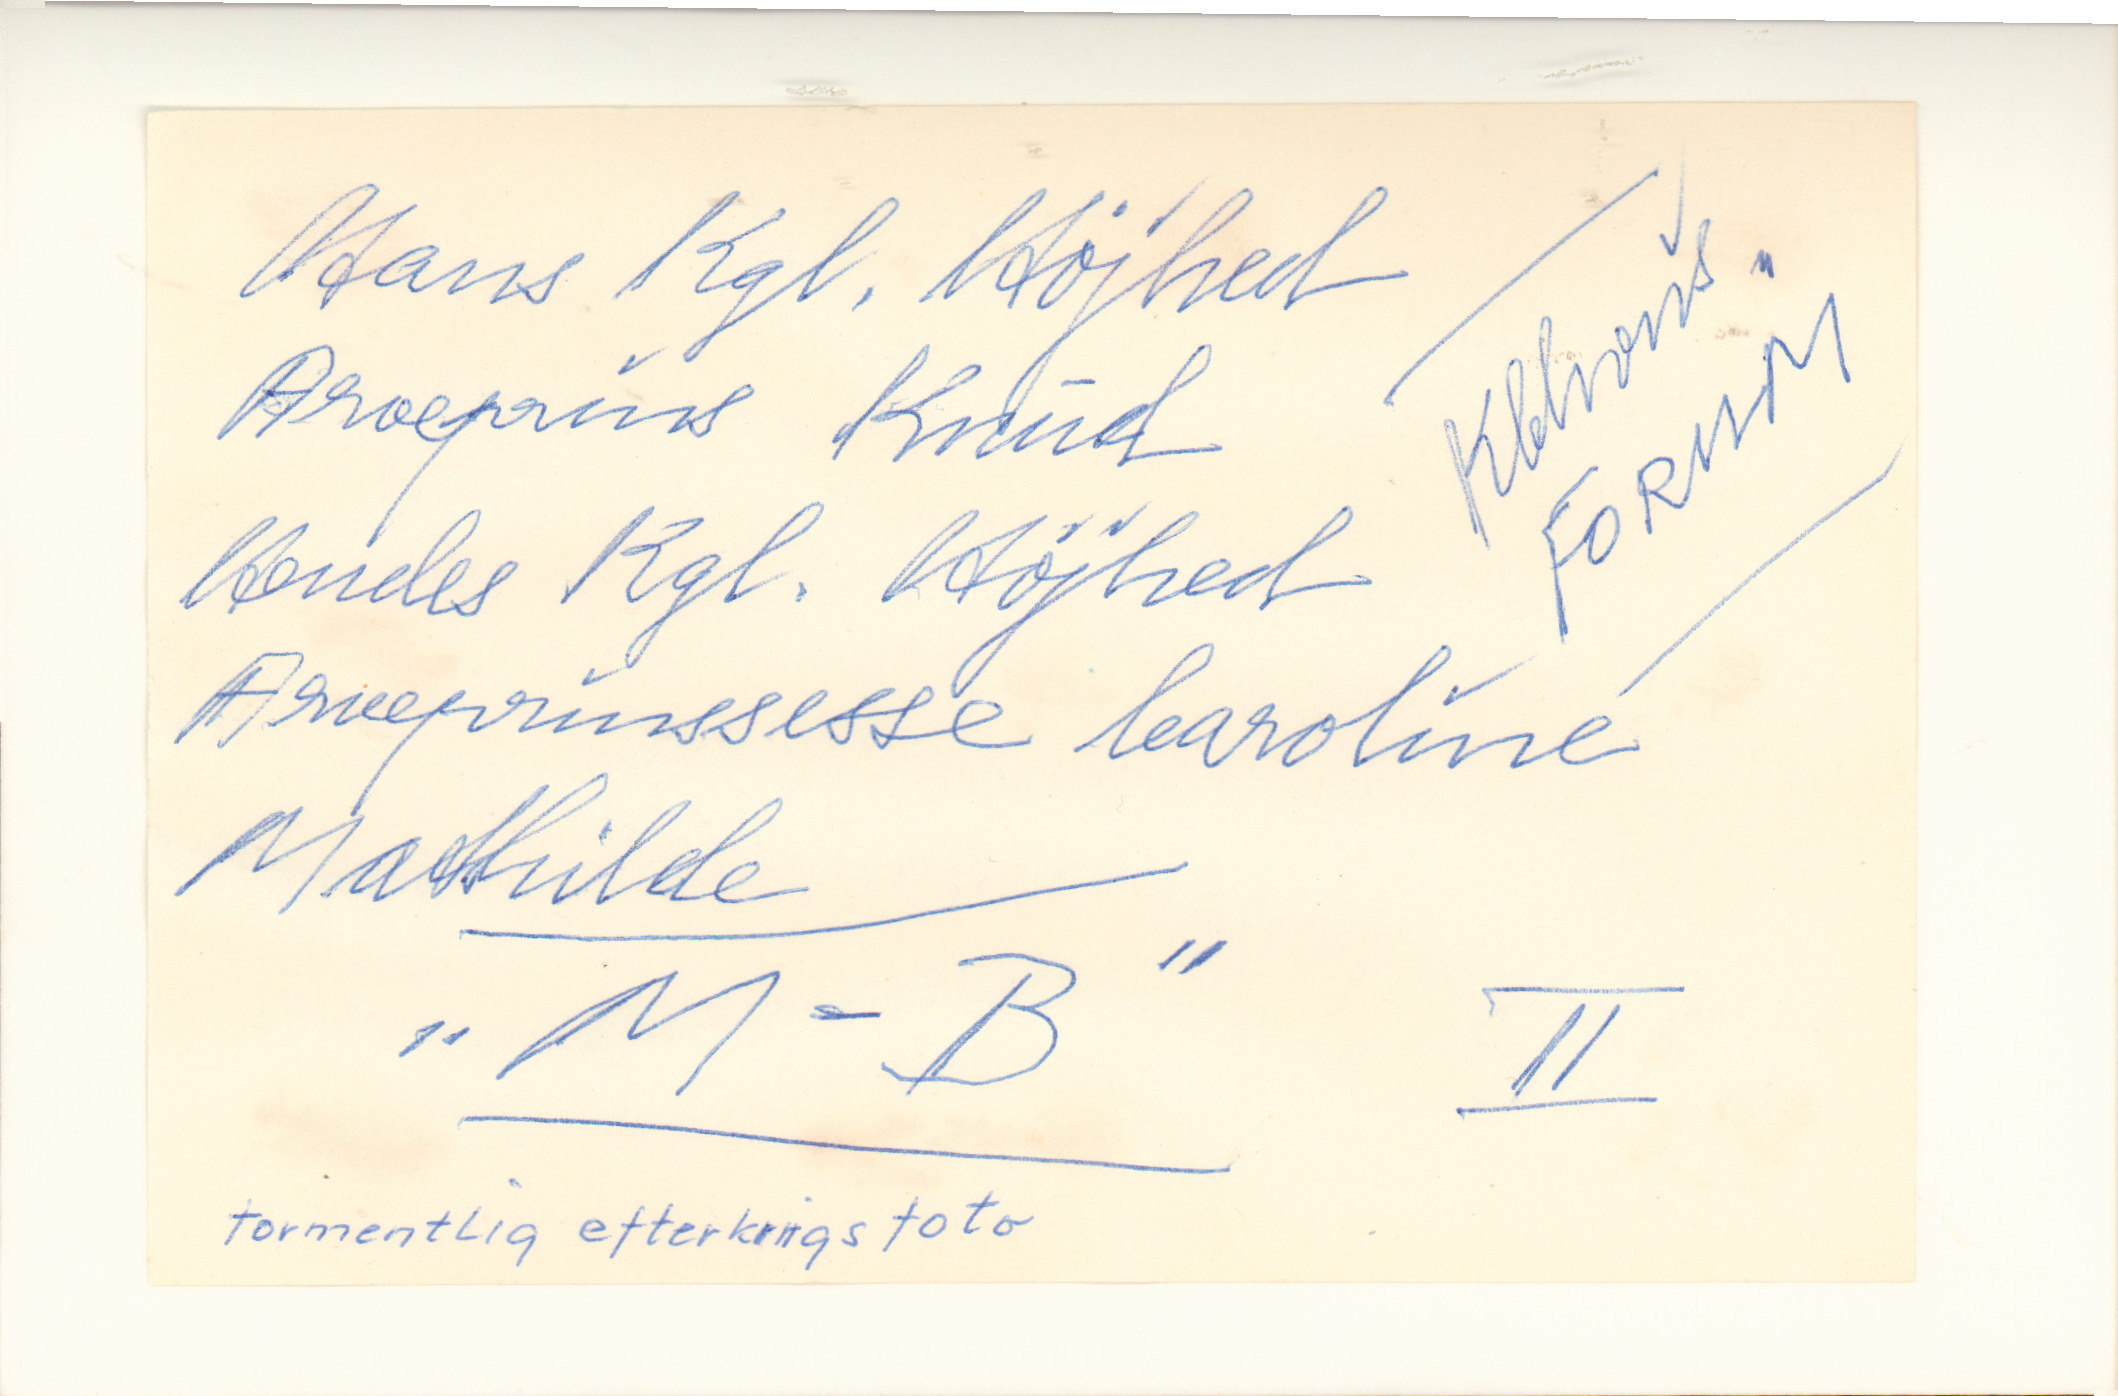 Hans Kgl. Højhed
Arveprins Knud
Hendes Kgl. Højhed
Arveprinssesse Caroline
Mathilde
„ M - B "
II
formentlig efterkrigsfoto
FORUM